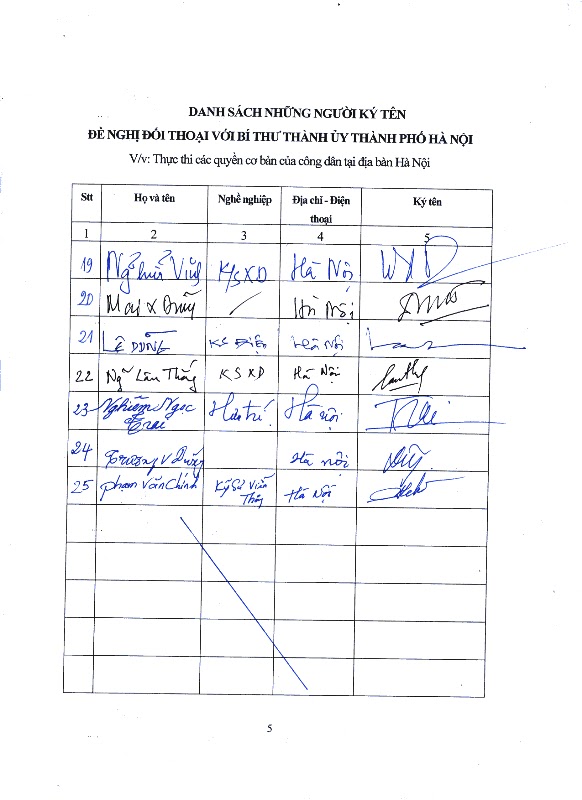 DANH SÁCH NHỮNG NGƯỜI KÝ TÊN
ĐỀ NGHỊ ĐỐI THOẠI VỚI BÍ THƯ THÀNH ỦY THÀNH PHỐ HÀ NỘI
V/v: Thực thi các quyền cơ bản của công dân tại địa bàn Hà Nội
Stt Họ và tên Nghề nghiệp Địa chỉ - Điện thoại Ký tên
1 2 3 4 5
19 K/S XD Hà Nội
20 Hà Nội
21 LÊ DŨNG KS Điện Hà Nội
22 Ngô Lâm Thắng KSXD Hà Nội
23 Nghiêm Ngọc Trai Hưu trí Hà nội
24 Trương V Dũng Hà nội
25 phạm văn Chính Kỹ sư Viễn Thông Hà Nội
5